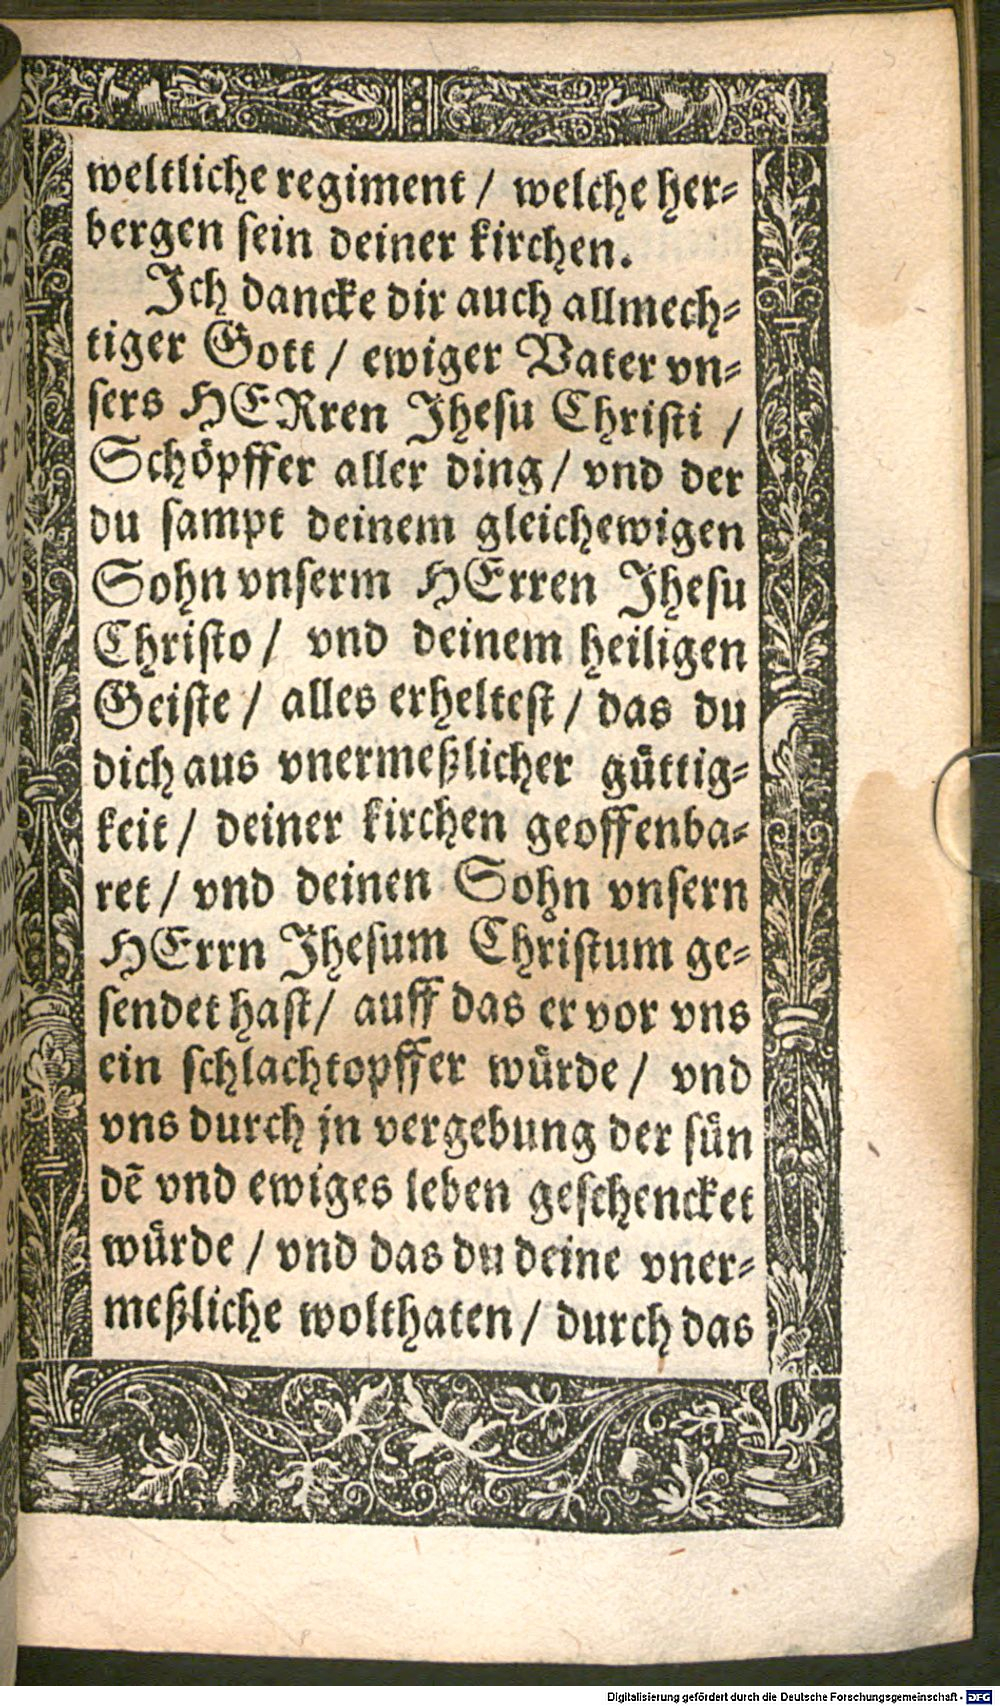 weltliche regiment / welche her⸗
bergen sein deiner kirchen.
Ich dancke dir auch allmech⸗
tiger Gott / ewiger Vater vn⸗
sers HERren Jhesu Christi /
Schöpffer aller ding / vnd der
du sampt deinem gleichewigen
Sohn vnserm HErren Jhesu
Christo / vnd deinem heiligen
Geiste / alles erheltest / das du
dich aus vnermeßlicher güttig⸗
keit / deiner kirchen geoffenba⸗
ret / vnd deinen Sohn vnsern
HErrn Jhesum Christum ge⸗
sendet hast / auff das er vor vns
ein schlachtopffer würde / vnd
vns durch jn vergebung der sün
dē vnd ewiges leben geschencket
würde / vnd das du deine vner⸗
meßliche wolthaten / durch das
Digitalisierung gefördert durch die Deutsche Forschungsgemeinschaft - DFG